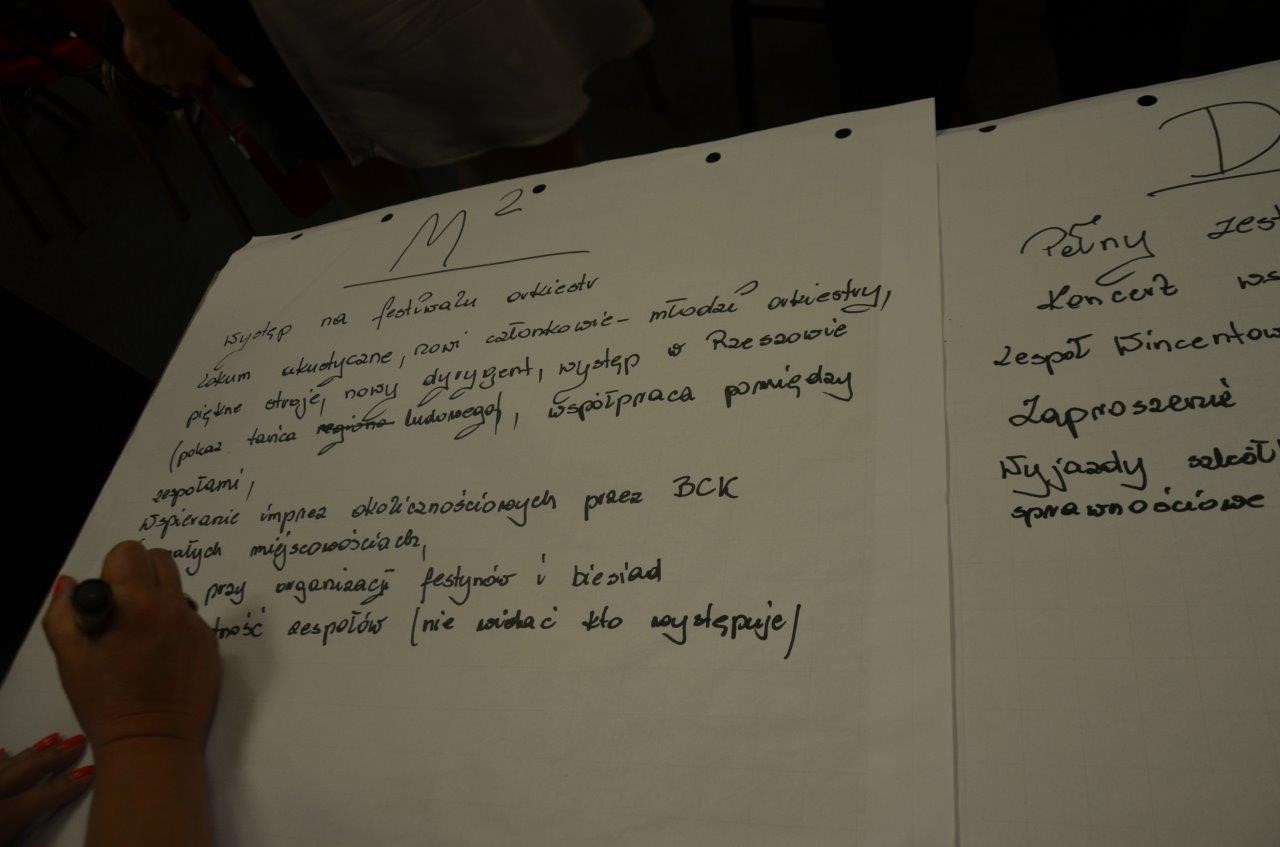 M²
Występ na festiwalu orkiestr
akustyczne, nowi członkowie - młodzi orkiestry,
piękne stroje, nowy dyrygent, występ w Rzeszowie
(pokaz tańca ludowego), współpraca pomiędzy
zespołami,
Wspieranie imprez okolicznościowych przez BCK
małych miejscowościach,
przy organizacji festynów i biesiad
zespołów (nie widać kto występuje)
D
Pełny
Koncert
zespół Wincentow
Zaproszenie
Wyjazdy szkół
sprawnościowe